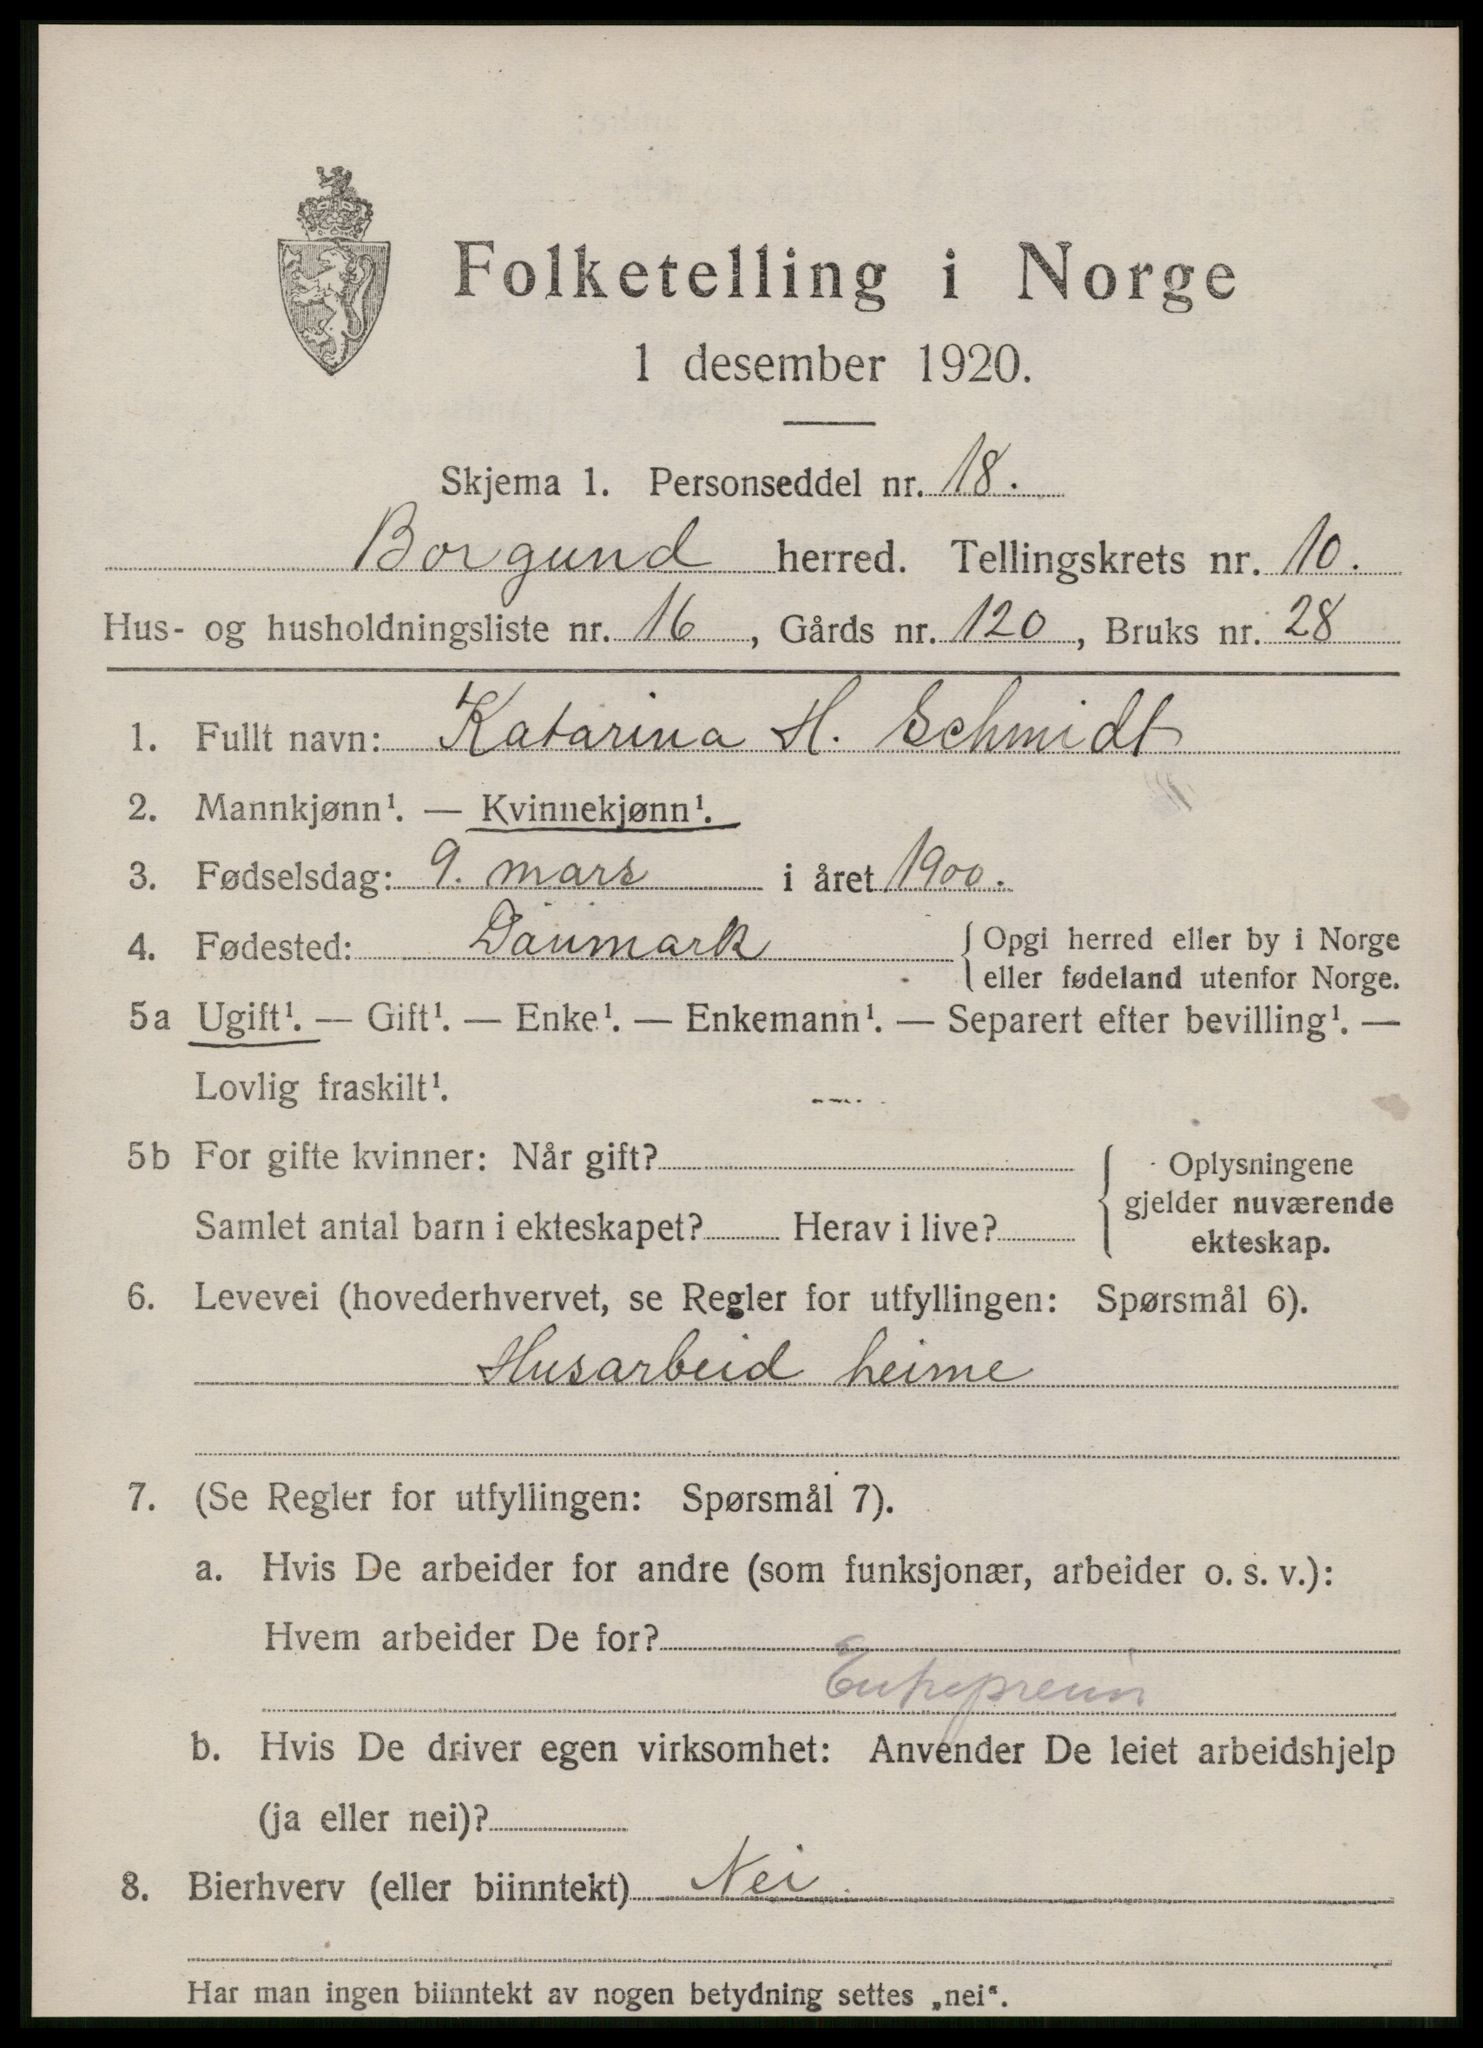 Folketelling i Norge
1 desember 1920.
Skjema 1. Personseddel nr. 18.
Borgund herred. Tellingskrets nr. 10.
Hus- og husholdningsliste nr. 16, Gårds nr. 120, Bruks nr. 28
1. Fullt navn: Katarina H. Schmidt
2. Mannkjønn¹. — Kvinnekjønn¹.
3. Fødselsdag: 9. mars i året 1900.
4. Fødested: Danmark { Opgi herred eller by i Norge
eller fødeland utenfor Norge.
5a Ugift¹. — Gift¹. — Enke¹. — Enkemann¹. — Separert efter bevilling¹. —
Lovlig fraskilt¹.
5b For gifte kvinner: Når gift?
Samlet antal barn i ekteskapet? Herav i live?
{ Oplysningene
gjelder nuværende
ekteskap.
6. Levevei (hovederhvervet, se Regler for utfyllingen: Spørsmål 6).
Husarbeid heime
7. (Se Regler for utfyllingen: Spørsmål 7).
a. Hvis De arbeider for andre (som funksjonær, arbeider o. s. v.):
Hvem arbeider De for?
b. Hvis De driver egen virksomhet: Anvender De leiet arbeidshjelp
(ja eller nei)?
8. Bierhverv (eller biinntekt) Nei.
Har man ingen biinntekt av nogen betydning settes „nei“.